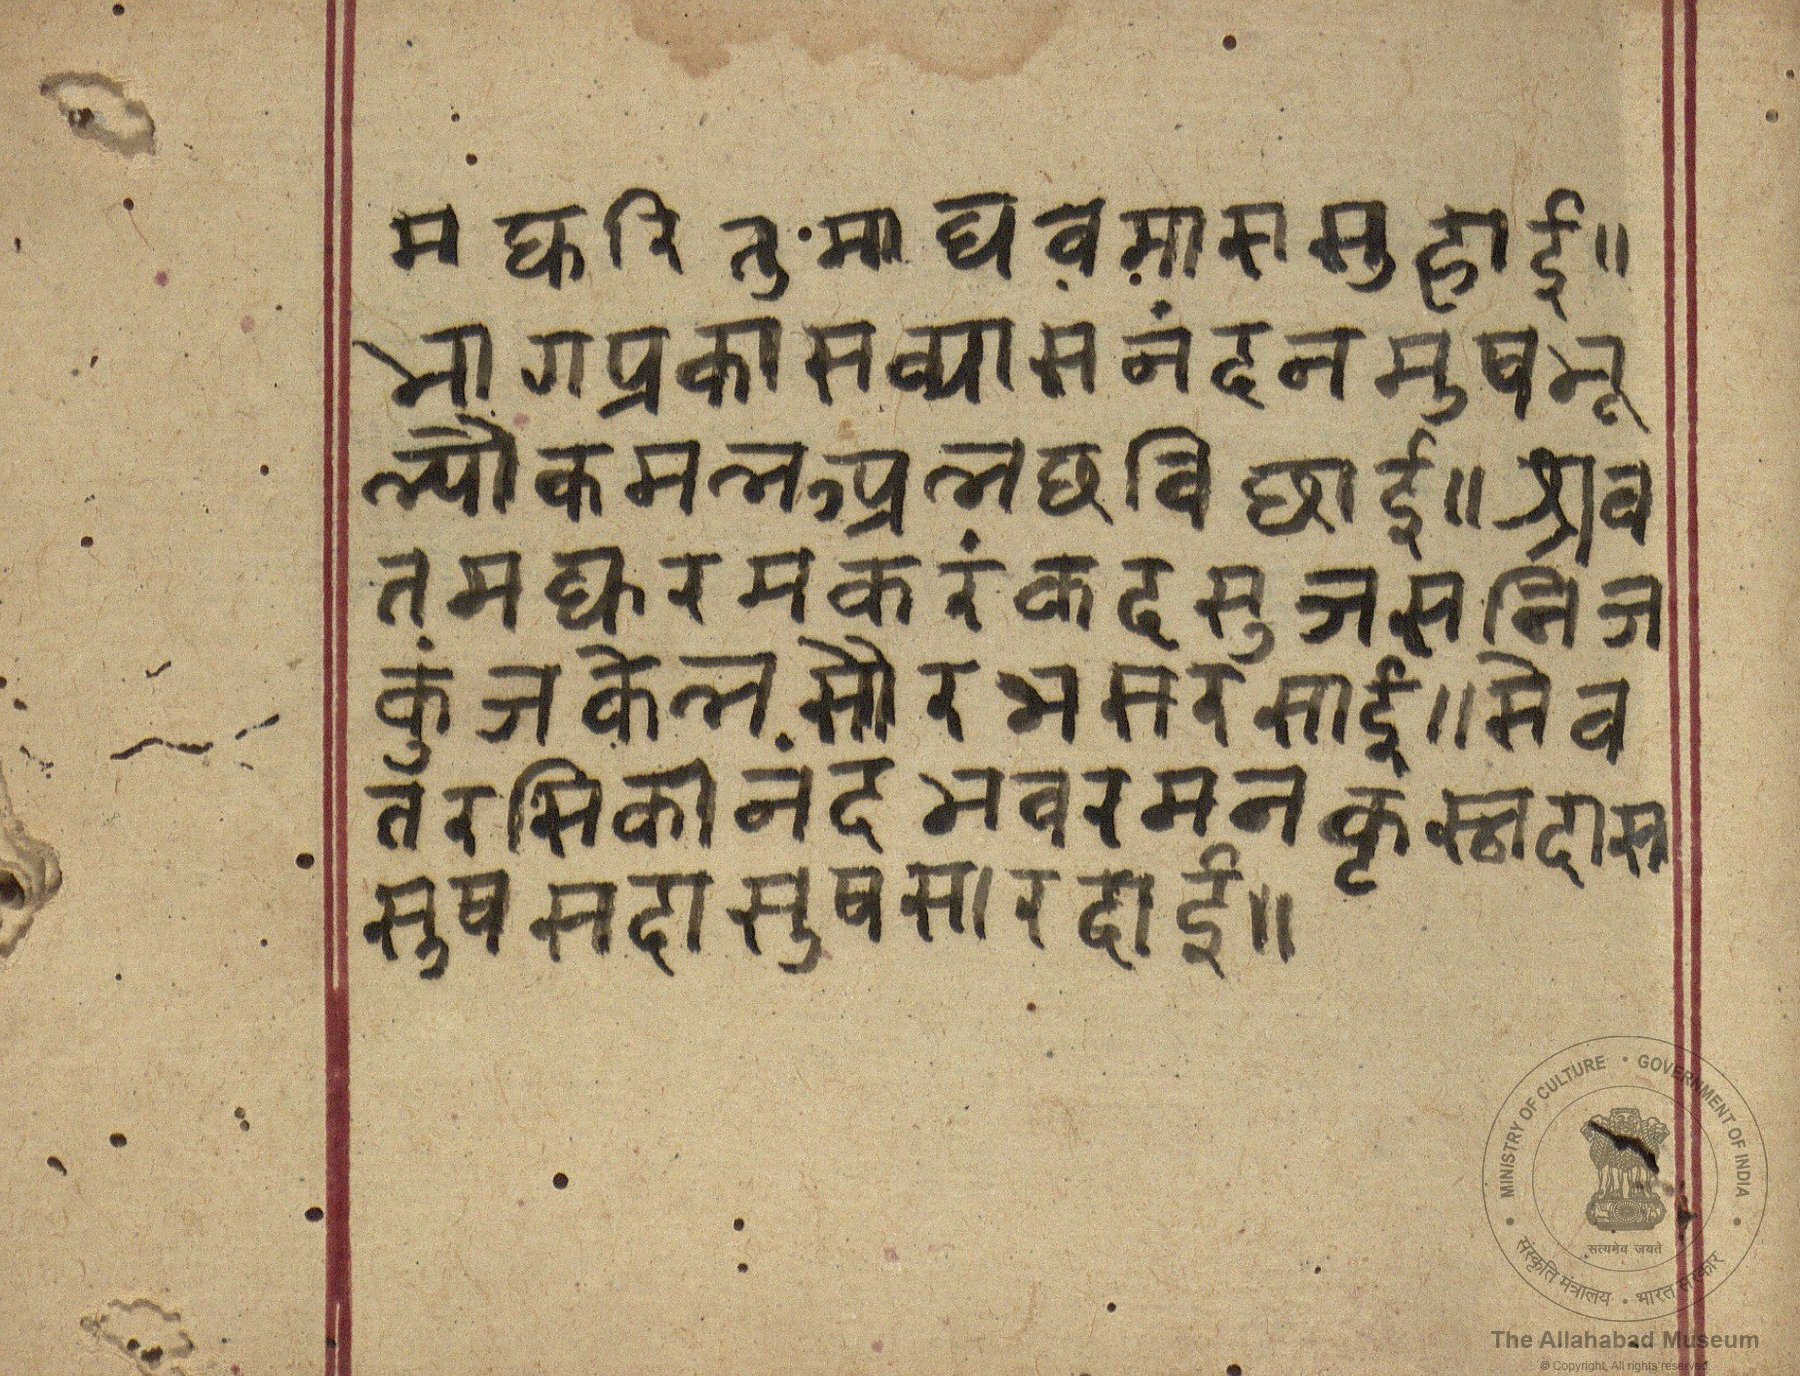 मधुरितु माधवमाससुहाई॥
भागप्रकासव्यासनंदनमुषफू
ल्यौकमलप्रलछविछाई॥श्रव
तमधुरमकरंकदसुजसनिज
कुंजकेलसौरभसरसाई॥सेव
तरसिकानंदभवरमनकृस्नदास
सुषसदासुषसारदाई॥
MINISTRY OF CULTURE • GOVERNMENT OF INDIA
सत्यमेव जयते
संस्कृति मंत्रालय • भारत सरकार
The Allahabad Museum
© Copyright, All rights reserved.